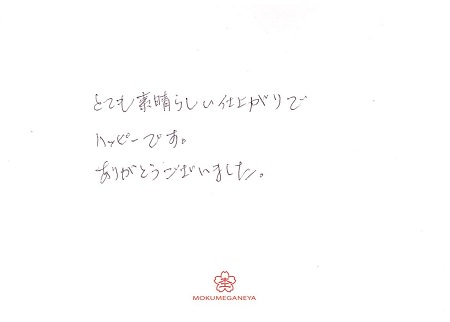 とても素晴らしい仕上がりで
ハッピーです。
ありがとうございました。
MOKUMEGANEYA